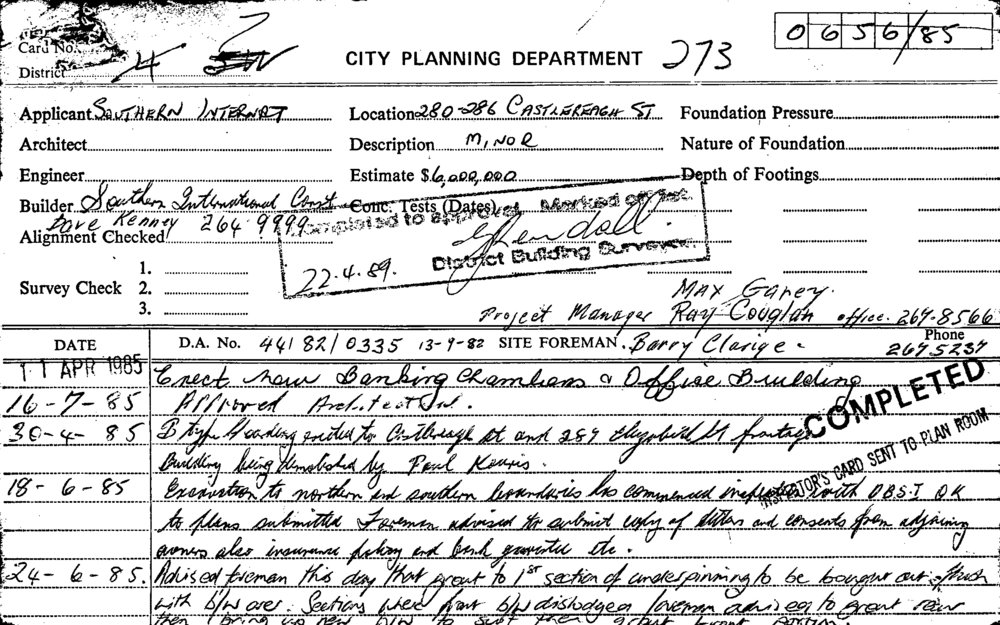 0656/85
Card No.
District 4
CITY PLANNING DEPARTMENT 273
Applicant SOUTHERN INTERNAT Location 280-286 CASTLEREAGH ST Foundation Pressure
Architect Description MINOR Nature of Foundation
Engineer Estimate $6,000,000 Depth of Footings
Builder Southern International Const Conc. Tests (Dates)
Dave Kenney 264 9999
Completed to approval Marked off
Alignment Checked
District Building Surveyor
22.4.89.
1.
Survey Check 2.
3.
MAX Garey.
Project Manager Ray Couglan office. 267-8566
DATE D.A. No. 44/82/0335 13-9-82 SITE FOREMAN. Barry Clarige Phone 267 5237
11 APR 1985 Erect new Banking Chambers & Office Building
COMPLETED
16-7-85 Approved Architectural.
30-4-85 B type Hoarding erected to Castlereagh St and 289 Elizabeth St frontage
Building being demolished by Paul
INSPECTOR'S CARD SENT TO PLAN ROOM
18-6-85 Excavation to northern and southern boundaries has commenced with D.B.S.I OK
to plans submitted Foreman advised to submit copy of letters and consents from adjoining
owners also insurance policy and bank etc.
24-6-85. Advised foreman this day that grout to 1st section of underpinning to be brought out flush
with b/w over. Sections were b/w dislodged foreman advised to grout
then bring up new b/w to then grout